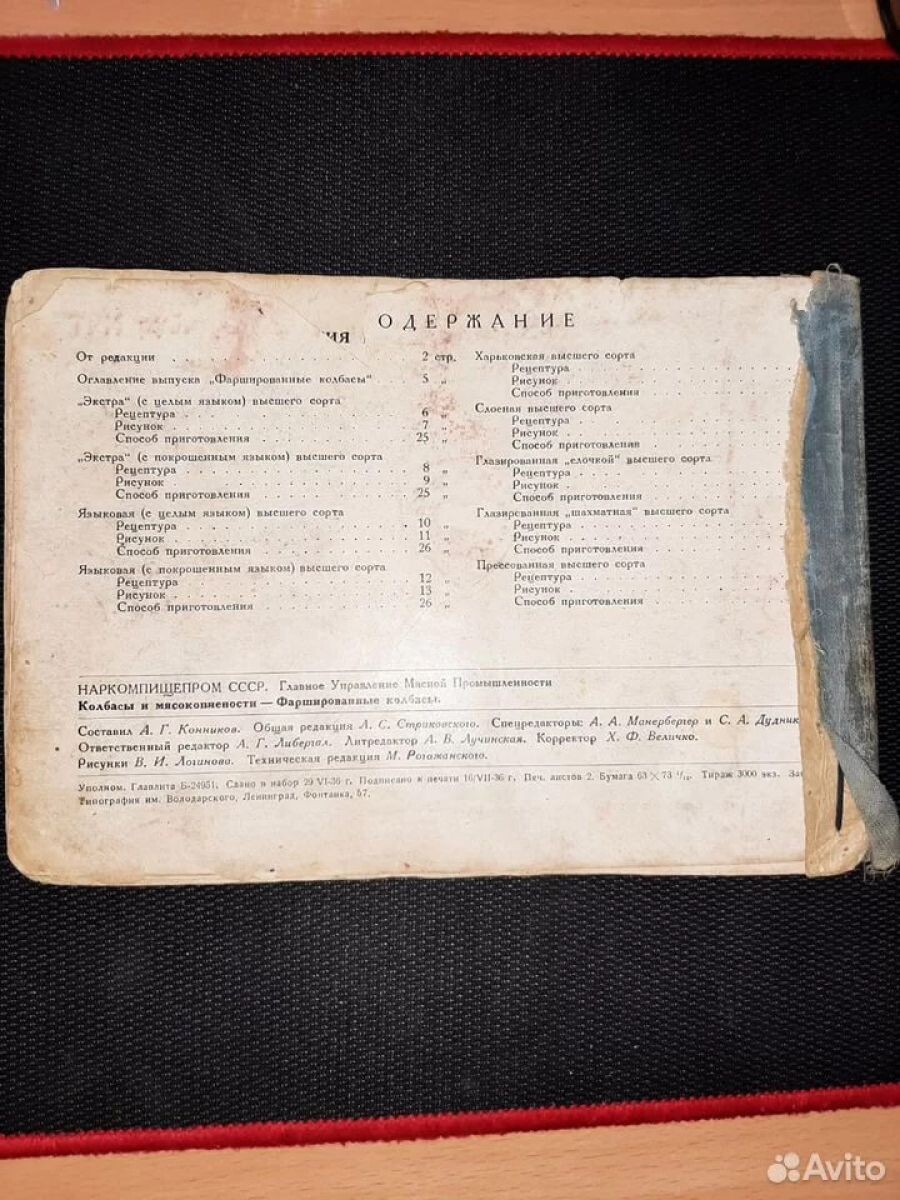 ОДЕРЖАНИЕ
ИЯ
От редакции . . . 2 стр.
Оглавление выпуска „Фаршированные колбасы“ . . . 5 „
„Экстра“ (с целым языком) высшего сорта
Рецептура . . . 6 „
Рисунок . . . 7 „
Способ приготовления . . . 25 „
„Экстра“ (с покрошенным языком) высшего сорта
Рецептура . . . 8 „
Рисунок . . . 9 „
Способ приготовления . . . 25 „
Языковая (с целым языком) высшего сорта
Рецептура . . . 10 „
Рисунок . . . 11 „
Способ приготовления . . . 26 „
Языковая (с покрошенным языком) высшего сорта
Рецептура . . . 12 „
Рисунок . . . 13 „
Способ приготовления . . . 26 „
Харьковская высшего сорта
Рецептура . . .
Рисунок . . .
Способ приготовления . . .
Слоеная высшего сорта
Рецептура . . .
Рисунок . . .
Способ приготовления . . .
Глазированная „елочкой“ высшего сорта
Рецептура . . .
Рисунок . . .
Способ приготовления . . .
Глазированная „шахматная“ высшего сорта
Рецептура . . .
Рисунок . . .
Способ приготовления . . .
Прессованная высшего сорта
Рецептура . . .
Рисунок . . .
Способ приготовления . . .
НАРКОМПИЩЕПРОМ СССР. Главное Управление Мясной Промышленности
Колбасы и мясокопчености — Фаршированные колбасы.
Составил А. Г. Конников. Общая редакция Л. С. Стриковского. Спецредакторы: А. А. Манербергер и С. А. Дудник
Ответственный редактор А. Г. Либерзал. Литредактор А. В. Лучинская. Корректор Х. Ф. Величко.
Рисунки В. И. Логинова. Техническая редакция М. Рогожанского.
Уполном. Главлита Б-24951. Сдано в набор 29 VI-36 г. Подписано к печати 16/VII-36 г. Печ. листов 2. Бумага 63 × 73 Тираж 3000 экз.
Типография им. Володарского, Ленинград, Фонтанка, 57.
Avito